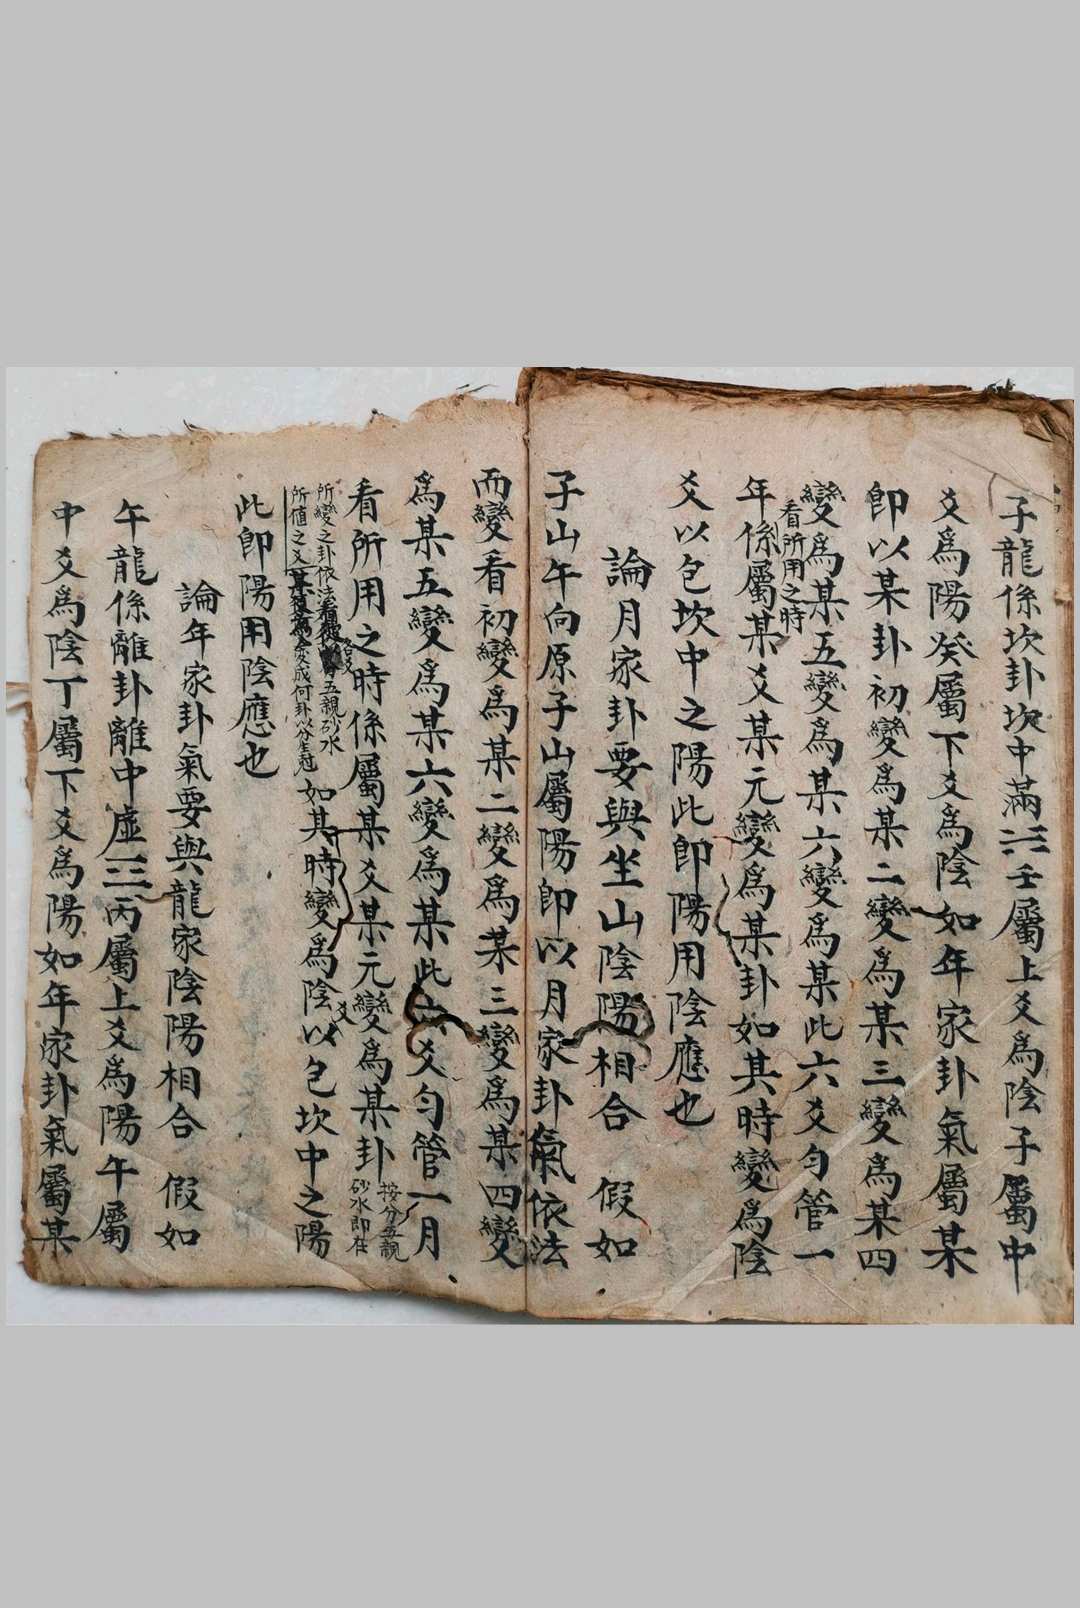 子龍係坎卦坎中滿☵壬屬上爻爲陰子屬中
爻爲陽癸屬下爻爲陰如年家卦氣屬某
即以某卦初變爲某二變爲某三變爲某四
變爲某五變爲某六變爲某此六爻匀管一
看所用之時
年係屬某爻某元變爲某卦如其時變爲陰
爻以包坎中之陽此即陽用陰應也
論月家卦要與坐山陰陽相合 假如
子山午向原子山屬陽即以月家卦氣依法
而變看初變爲某二變爲某三變爲某四變
爲某五變爲某六變爲某此六爻匀管一月
看所用之時係屬某爻某元變爲某卦
按分五親
砂水即在
所變之卦依法五親砂水
所值之爻變成何卦以分生冠
如其時變爲陰爻以包坎中之陽
此即陽用陰應也
論年家卦氣要與龍家陰陽相合 假如
午龍係離卦離中虛☲丙屬上爻爲陽午屬
中爻爲陰丁屬下爻爲陽如年家卦氣屬某